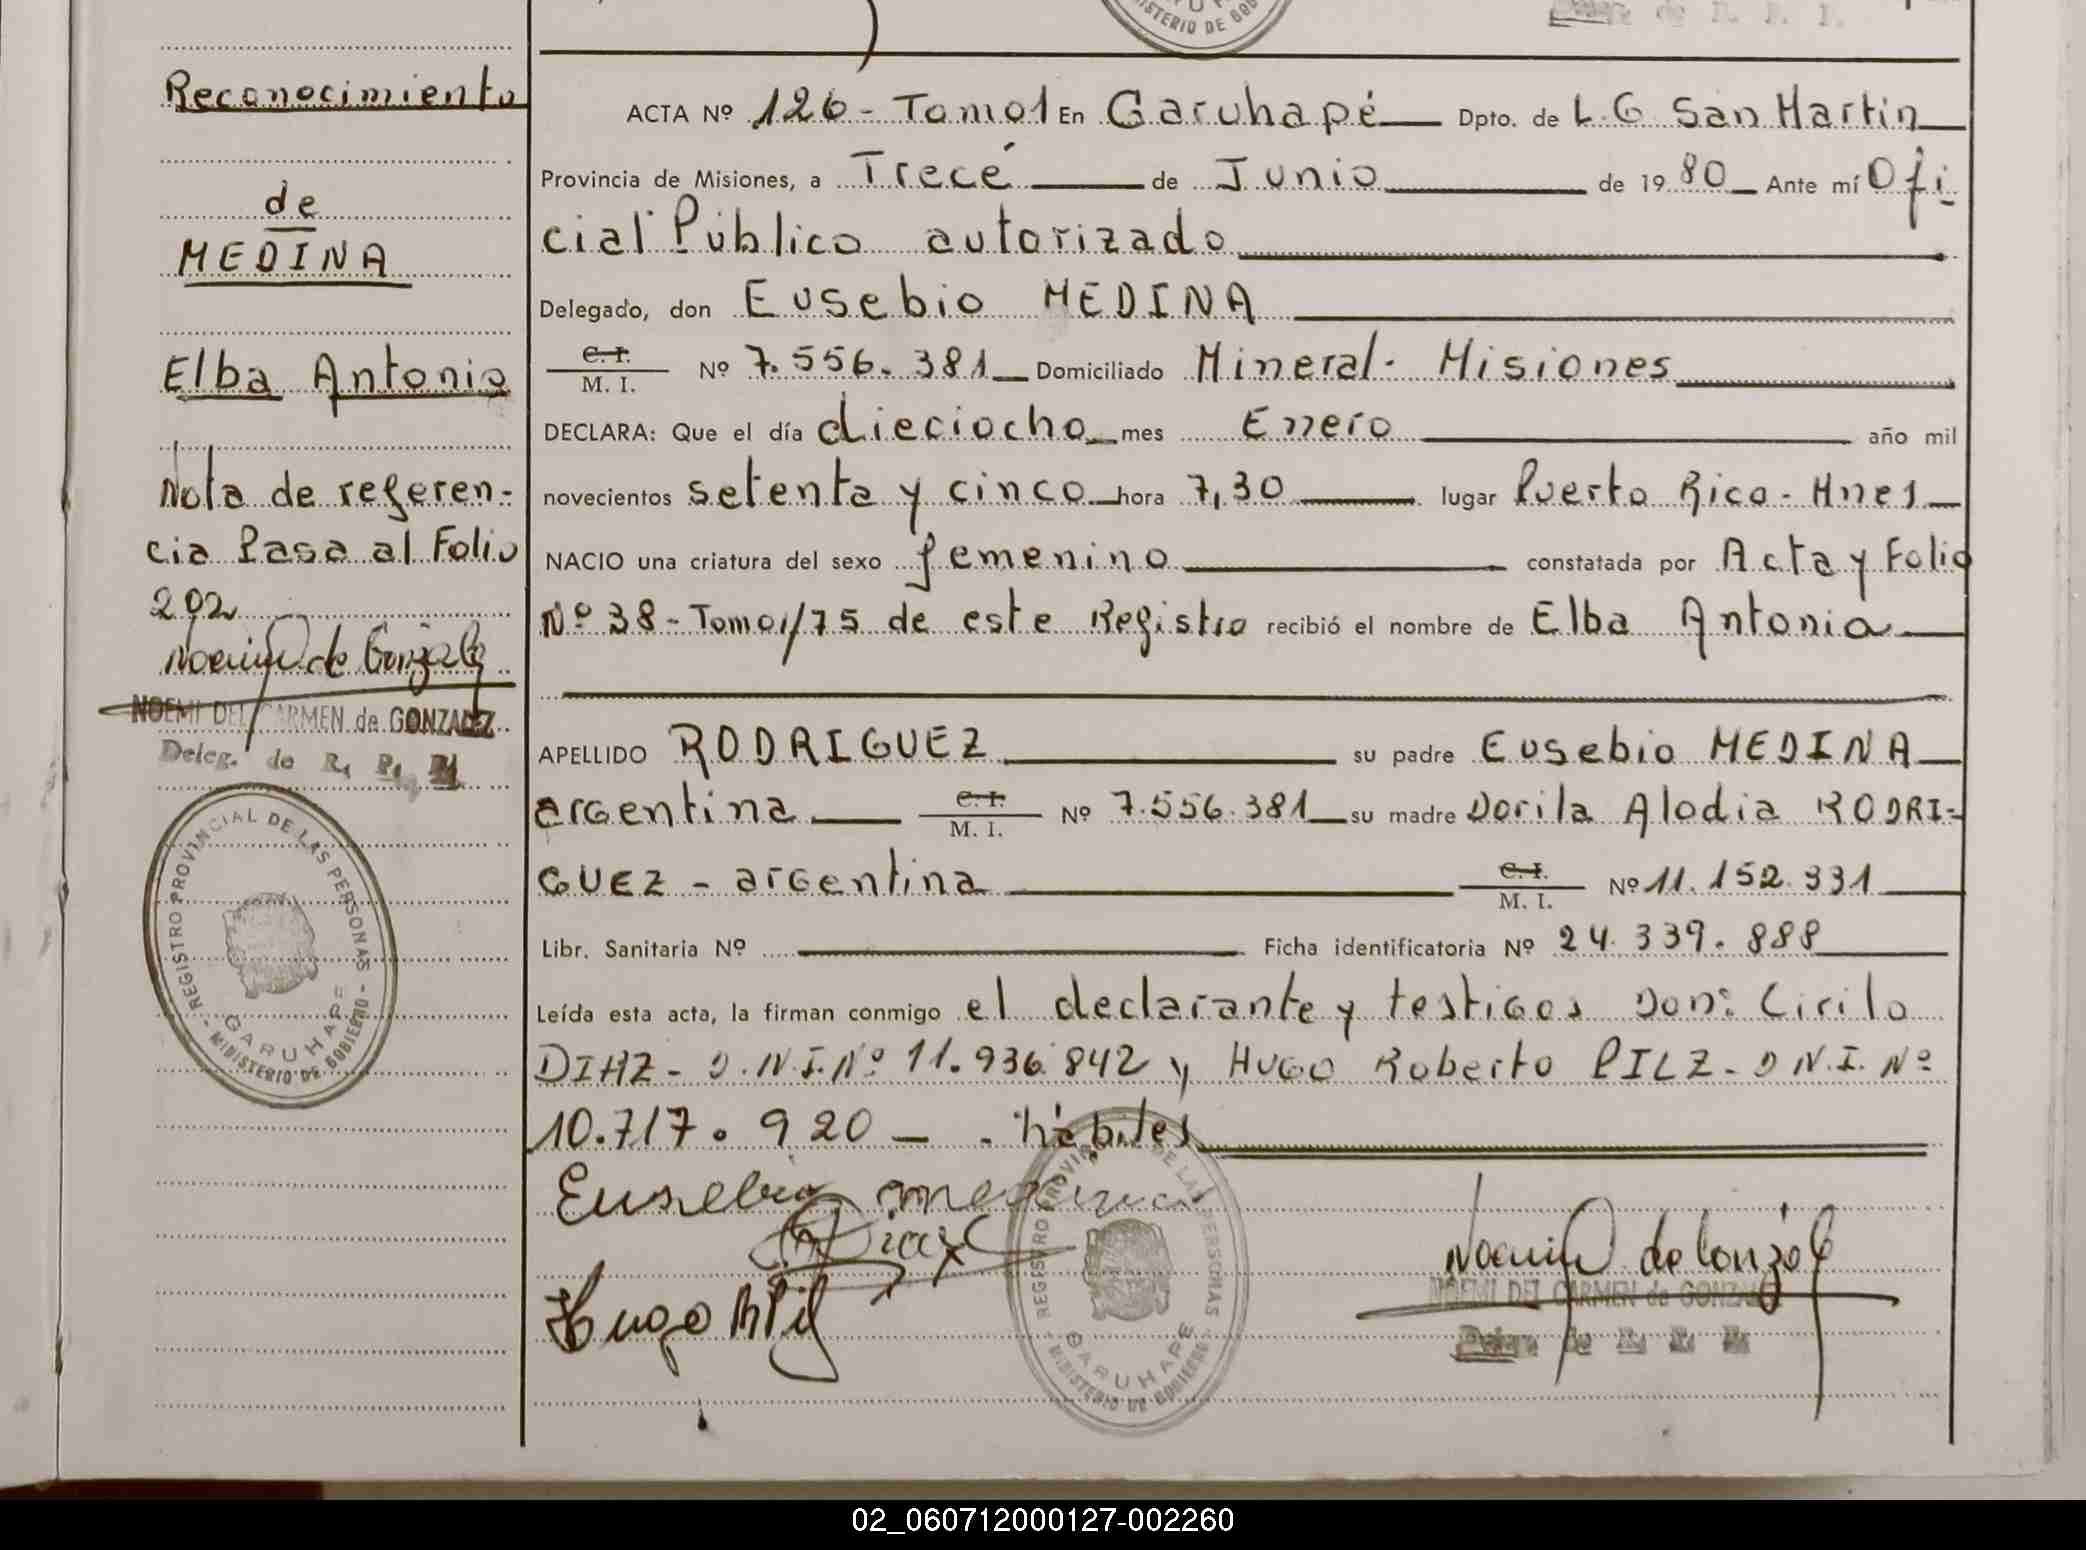 MINISTERIO DE GOB
Reconocimiento
de
MEDINA
Elba Antonia
Nota de referen-
cia Pasa al Folio
292
Noemi de Gonzalez
NOEMI DEL CARMEN de GONZALEZ
Deleg. de R. P. P.
REGISTRO PROVINCIAL DE LAS PERSONAS - GARUHAPE - MINISTERIO DE GOBIERNO -
ACTA Nº 126 - Tomo 1 En Garuhapé Dpto. de L. G. San Martin
Provincia de Misiones, a Trecé de Junio de 19 80 Ante mí Ofi
cial Público autorizado
Delegado, don Eusebio MEDINA
C. I. M. I. Nº 7.556.381 Domiciliado Mineral - Misiones
DECLARA: Que el día dieciocho mes Enero año mil
novecientos setenta y cinco hora 7,30 lugar Puerto Rico - Mnes
NACIO una criatura del sexo femenino constatada por Acta y Folio
Nº 38 - Tomo 1/75 de este Registro recibió el nombre de Elba Antonia
APELLIDO RODRIGUEZ su padre Eusebio MEDINA
argentina C. I. M. I. Nº 7.556.381 su madre Dorila Alodia RODRI-
GUEZ - argentina C. I. M. I. Nº 11.152.331
Libr. Sanitaria Nº Ficha identificatoria Nº 24.339.888
Leída esta acta, la firman conmigo el declarante y testigos Don: Cirilo
DIAZ - D.N.I. Nº 11.936.842 y Hugo Roberto PILZ - D.N.I. Nº
10.717.920 - hábiles
Eusebio medina
Diaz
Hugo R Pilz
REGISTRO PROVINCIAL DE LAS PERSONAS - GARUHAPE - MINISTERIO DE GOBIERNO -
Noemi de Gonzalez
NOEMI DEL CARMEN de GONZALEZ
02_060712000127-002260